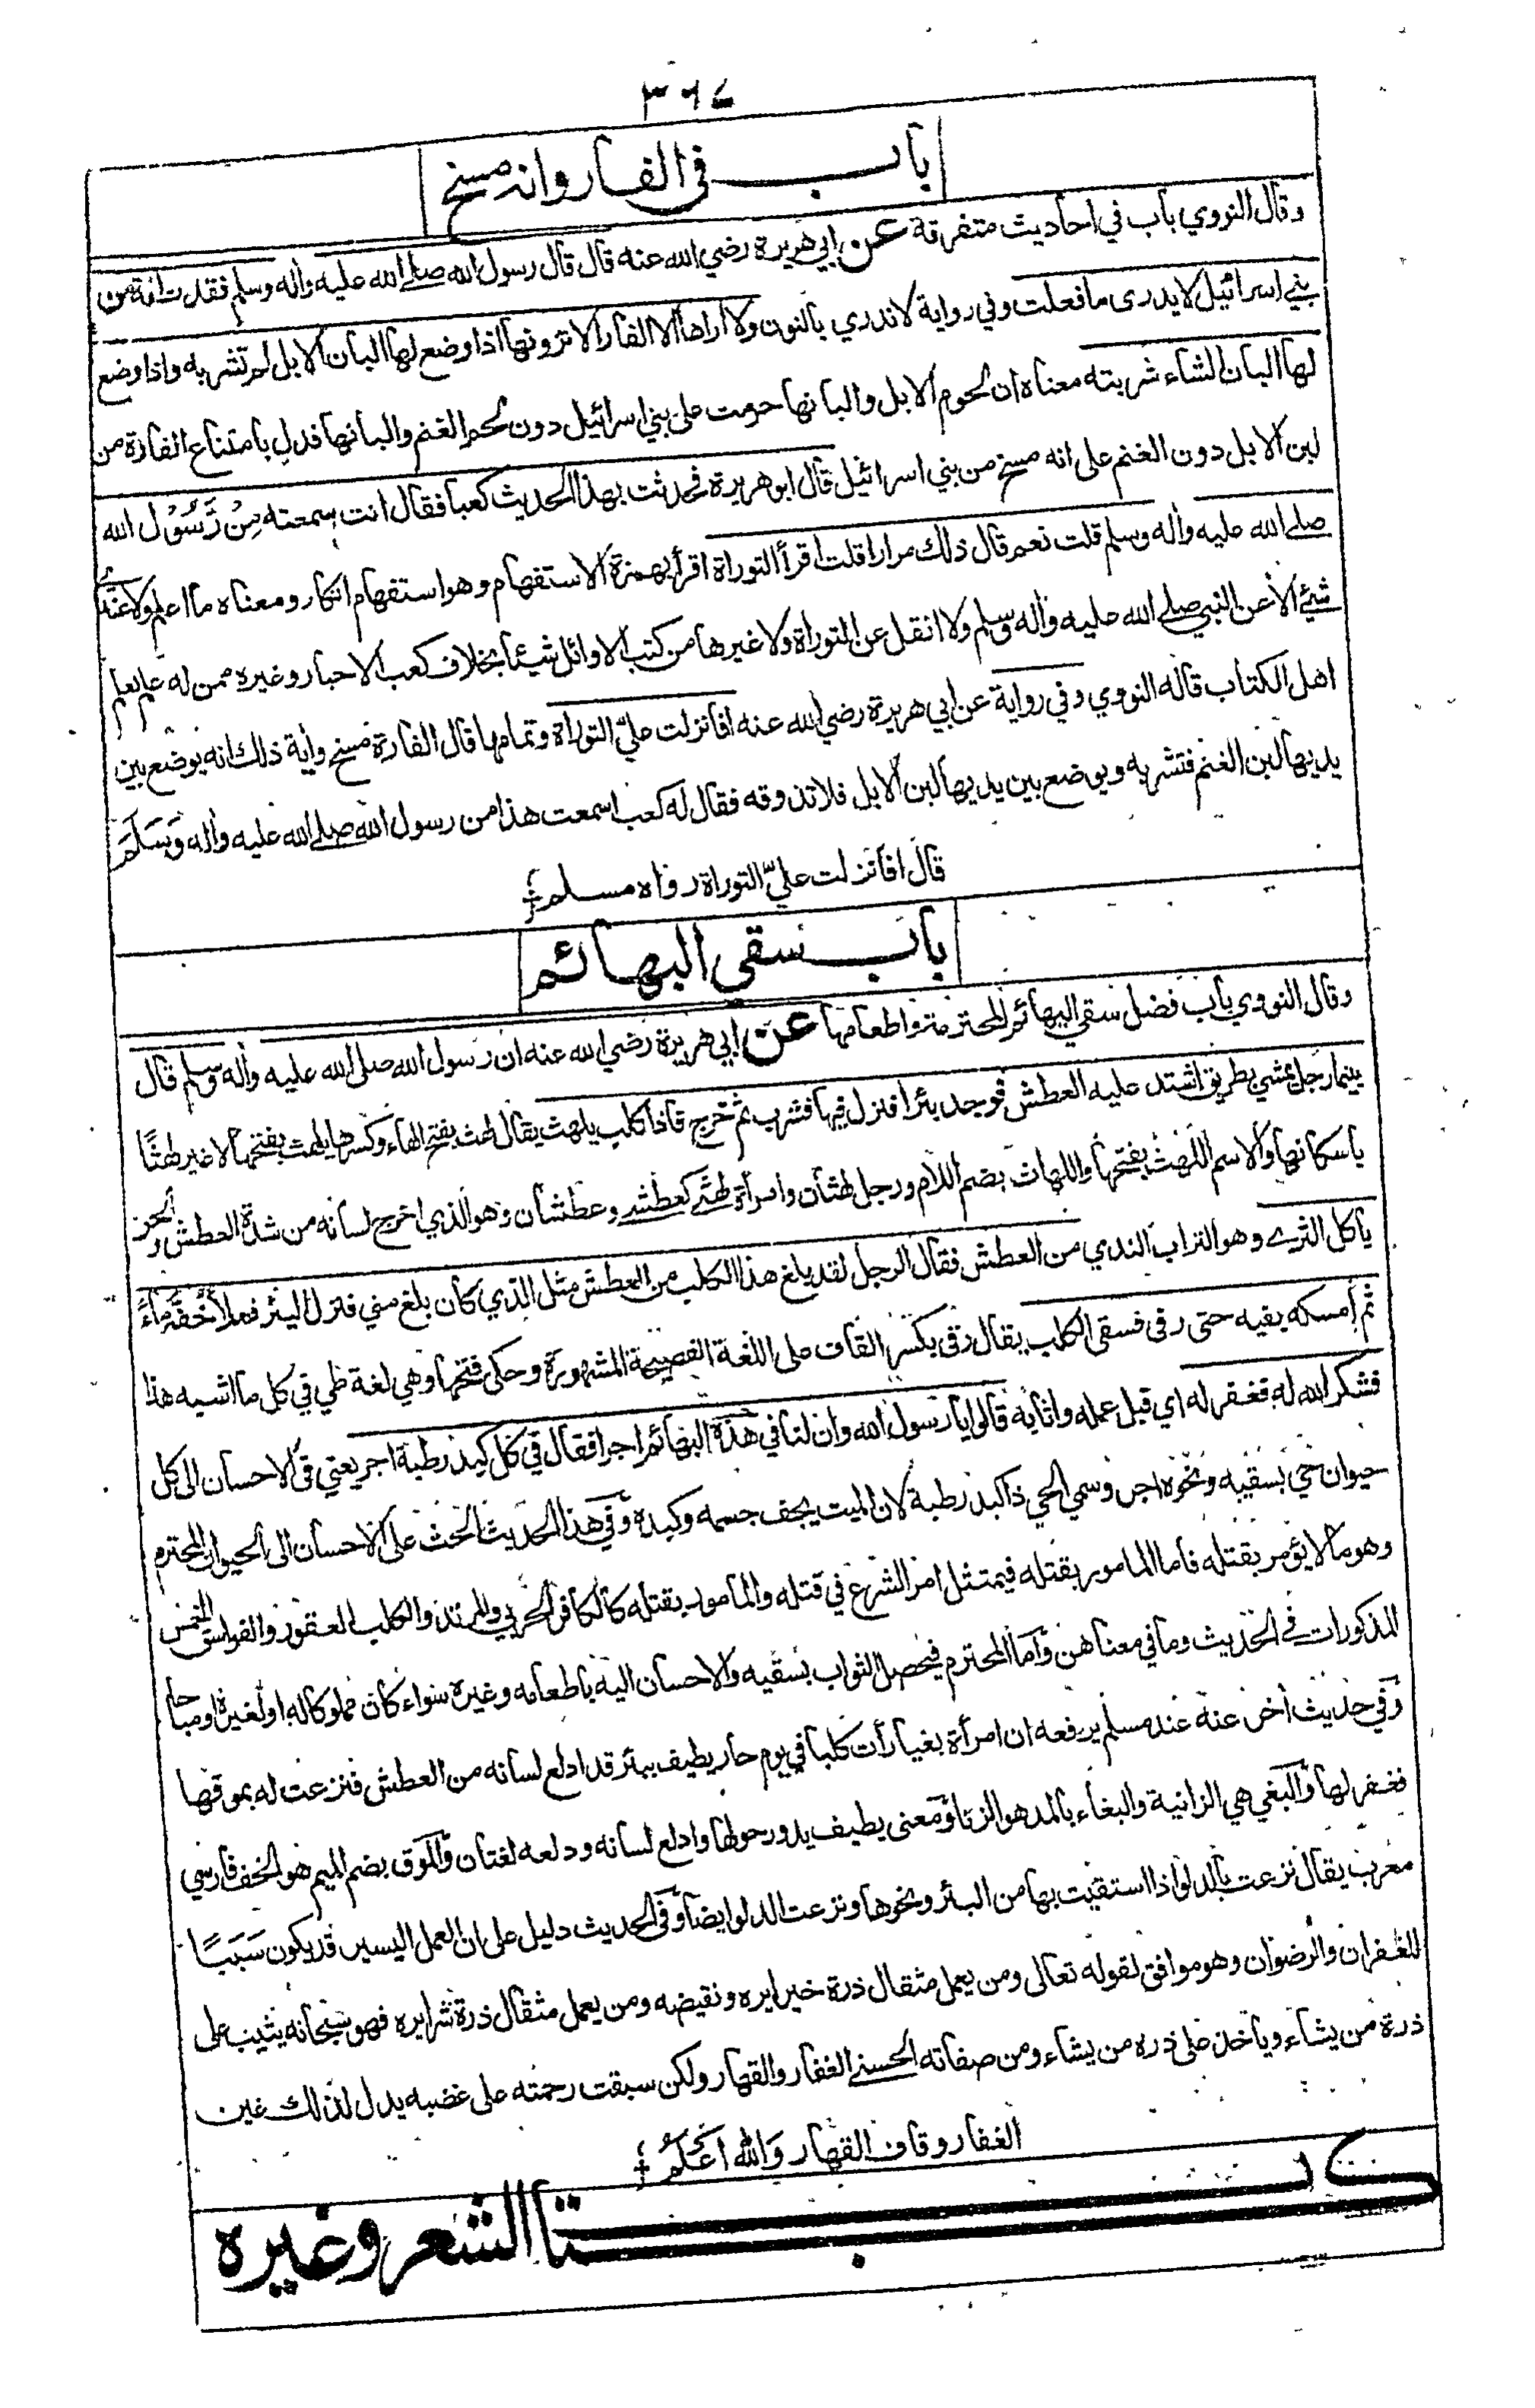 ٣٦٤
باب في الفار وانه مسخ
وقال النووي باب في احاديث متفرقة عن ابي هريرة رضي الله عنه قال قال رسول الله صلى الله عليه واله وسلم فقدت امة من
بني اسرائيل لا يدرى ما فعلت وفي رواية لا ندري بالنون ولا اراها الا الفار الا ترونها اذا وضع لها البان الابل لم تشربه واذا وضع
لها البان الشاء شربته معناه ان لحوم الابل والبانها حرمت على بني اسرائيل دون لحم الغنم والبانها فدل بامتناع الفارة من
لبن الابل دون الغنم على انه مسخ من بني اسرائيل قال ابو هريرة فحدثت بهذا الحديث كعبا فقال انت سمعته مِنْ رَسُوْل الله
صلى الله عليه واله وسلم قلت نعم قال ذلك مرارا قلت اقرأ التوراة اقرأ بهمزة الاستفهام وهو استفهام انكار ومعناه ما اعلم ولا عندي
شيئ الا عن النبي صلى الله عليه واله وسلم ولا انقل عن التوراة ولا غيرها من كتب الاوائل شيئا بخلاف كعب الاحبار وغيره ممن له علم بعلم
اهل الكتاب قاله النووي وفي رواية عن ابي هريرة رضي الله عنه افانزلت عليّ التوراة وتمامها قال الفارة مسخ واية ذلك انه يوضع بين
يديها لبن الغنم فتشربه ويوضع بين يديها لبن الابل فلا تذوقه فقال له كعب اسمعت هذا من رسول الله صلى الله عليه واله وَسَلَّمَ
قال افانزلت عليّ التوراة رواه مسلم
باب سقي البهائم
وقال النووي باب فضل سقي البهائم المحترمة واطعامها عن ابي هريرة رضي الله عنه ان رسول الله صلى الله عليه واله وسلم قال
بينما رجل يمشي بطريق اشتد عليه العطش فوجد بئرا فنزل فيها فشرب ثم خرج فاذا كلب يلهث يقال لهث بفتح الهاء وكسرها يلهث بفتحها لا غير لهثًا
باسكانها والاسم اللهث بفتحها واللهاث بضم اللام ورجل لهثان وامرأة لهثى كعطشى وعطشان وهو الذي اخرج لسانه من شدة العطش والحر
يأكل الثرى وهو التراب الندي من العطش فقال الرجل لقد بلغ هذا الكلب من العطش مثل الذي كان بلغ مني فنزل البئر فملأ خُفَّه ماءً
ثم امسكه بفيه حتى رقى فسقى الكلب يقال رقى بكسر القاف على اللغة الفصيحة المشهورة وحكى فتحها وهي لغة طي في كل ما اشبه هذا
فشكر الله له فغفر له اي قبل عمله واثابه قالوا يا رسول الله وان لنا في هذه البهائم اجرا فقال في كل كبد رطبة اجر يعني في الاحسان الى كل
حيوان حي بسقيه ونحوه اجر وسمي الحي ذا كبد رطبة لان الميت يجف جسمه وكبده وفي هذا الحديث الحث على الاحسان الى الحيوان المحترم
وهو ما لا يؤمر بقتله فاما المامور بقتله فيمتثل امر الشرع في قتله والمامور بقتله كالكافر الحربي والمرتد والكلب العقور والفواسق الخمس
المذكورات في الحديث وما في معناهن واما المحترم فيحصل الثواب بسقيه والاحسان اليه باطعامه وغيره سواء كان مملوكا له او لغيره او مباحا
وفي حديث اخر عنه عند مسلم يرفعه ان امرأة بغيا رأت كلبا في يوم حار يطيف ببئر قد ادلع لسانه من العطش فنزعت له بموقها
فغفر لها والبغي هي الزانية والبغاء بالمد هو الزنا ومعنى يطيف يدور حولها وادلع لسانه ودلعه لغتان والموق بضم الميم هو الخف فارسي
معرب يقال نزعت بالدلو اذا استقيت بها من البئر ونحوها ونزعت الدلو ايضا وفي الحديث دليل على ان العمل اليسير قد يكون سَبَبًا
للغفران والرضوان وهو موافق لقوله تعالى ومن يعمل مثقال ذرة خيرا يره ونقيضه ومن يعمل مثقال ذرة شرا يره فهو سبحانه يثيب على
ذرة من يشاء وياخذ على ذره من يشاء ومن صفاته الحسنى الغفار والقهار ولكن سبقت رحمته على غضبه يدل لذلك غين
الغفار وقاف القهار وَالله اَعْلَمُ
كتاب الشعر وغيره